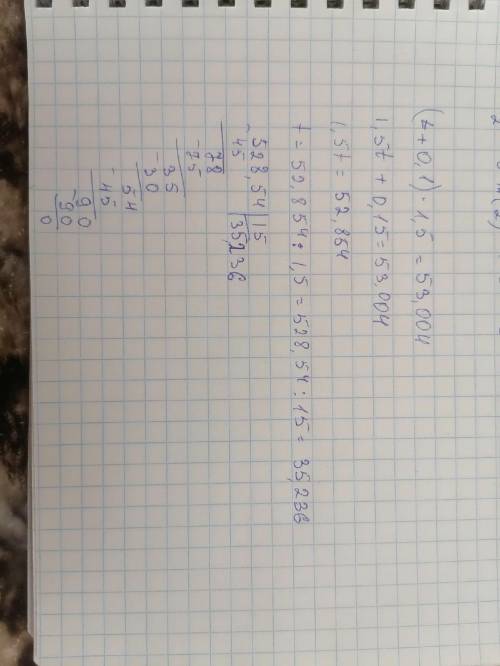 (t + 0,1) · 1,5 = 53,004
1,5t + 0,15 = 53,004
1,5t = 52,854
t = 52,854 : 1,5 = 528,54 : 15 = 35,236
528,54 | 15
- 45 | 35,236
78
- 75
35
- 30
54
- 45
90
- 90
0